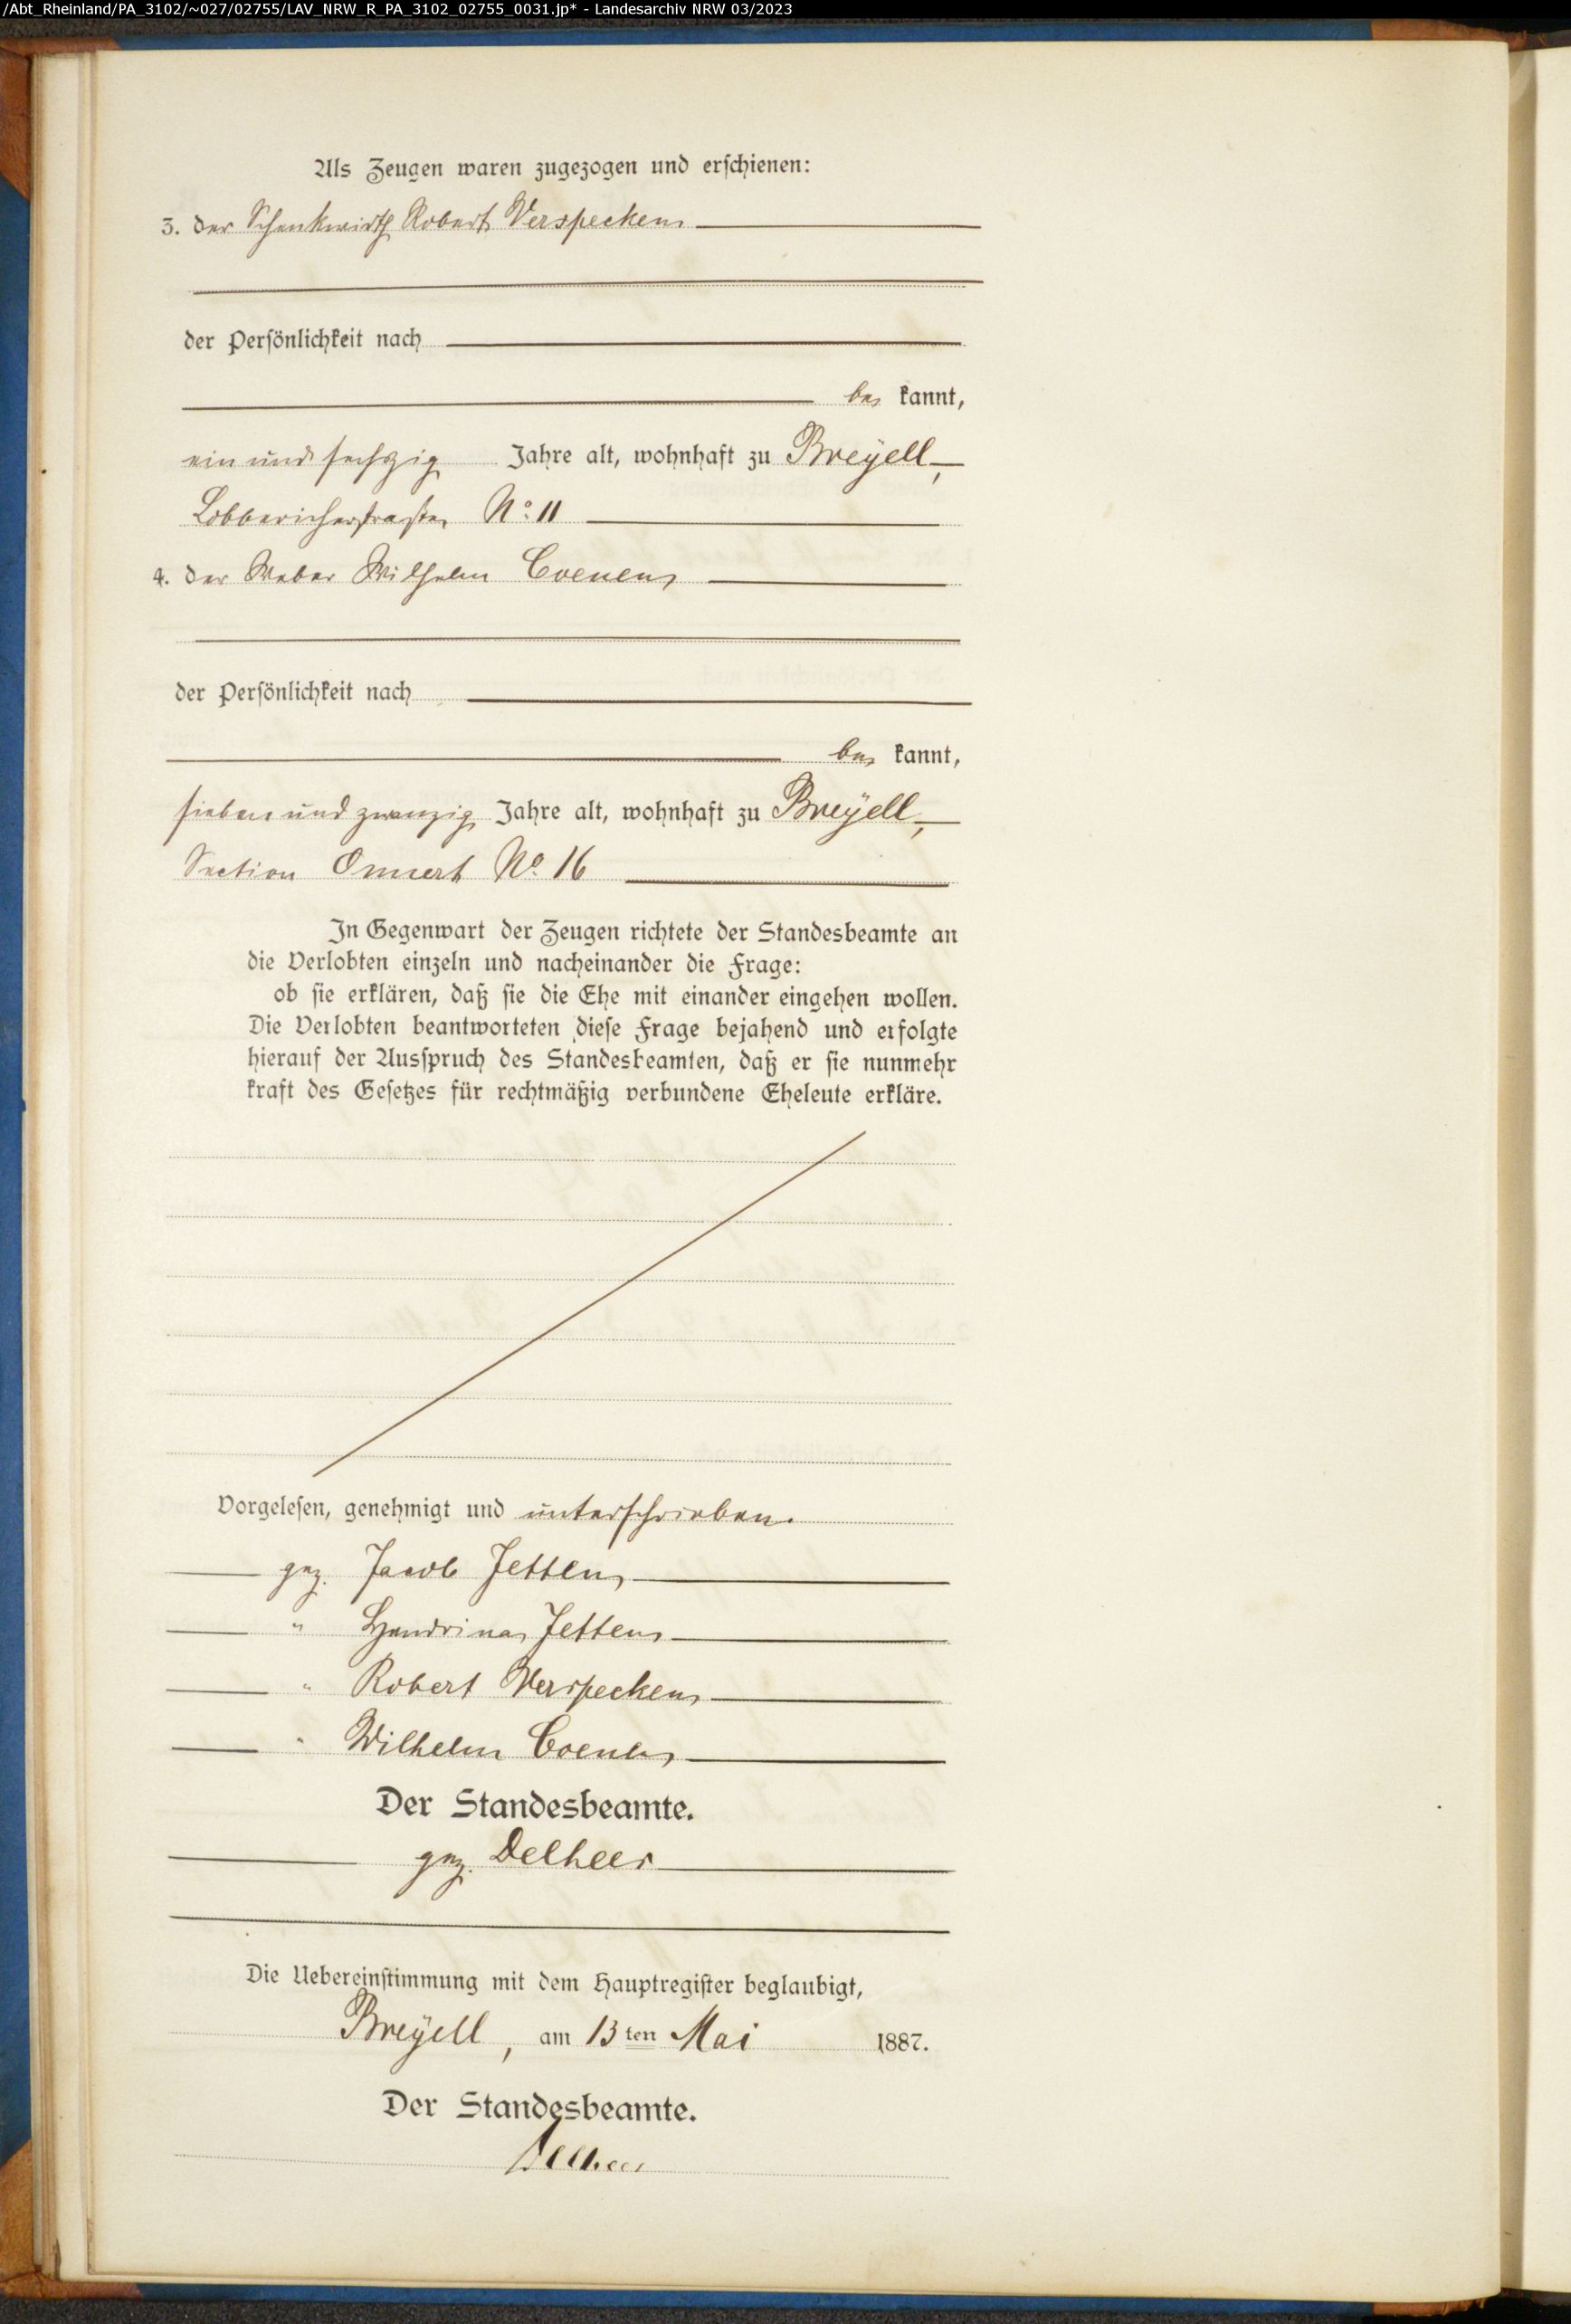 /Abt_Rheinland/PA_3102/~027/02755/LAV_NRW_R_PA_3102_02755_0031.jp* - Landesarchiv NRW 03/2023
Als Zeugen waren zugezogen und erschienen:
3. der Schenkwirth Robert Verspecken
der Persönlichkeit nach
be kannt,
ein und sechzig Jahre alt, wohnhaft zu Breÿell,
Lobbericherstraße N° 11
4. der Weber Wilhelm Coenen
der Persönlichkeit nach
be kannt,
sieben und zwanzig Jahre alt, wohnhaft zu Breÿell,
Section Onnert N° 16
In Gegenwart der Zeugen richtete der Standesbeamte an
die Verlobten einzeln und nacheinander die Frage:
ob sie erklären, daß sie die Ehe mit einander eingehen wollen.
Die Verlobten beantworteten diese Frage bejahend und erfolgte
hierauf der Ausspruch des Standesbeamten, daß er sie nunmehr
kraft des Gesetzes für rechtmäßig verbundene Eheleute erkläre.
Vorgelesen, genehmigt und unterschrieben.
gez. Jacob Jetten
" Hendrina Jetten
" Robert Verspecken
" Wilhelm Coenen
Der Standesbeamte.
gez. Delhees
Die Uebereinstimmung mit dem Hauptregister beglaubigt,
Breÿell, am 13ten Mai 1887.
Der Standesbeamte.
Delhees